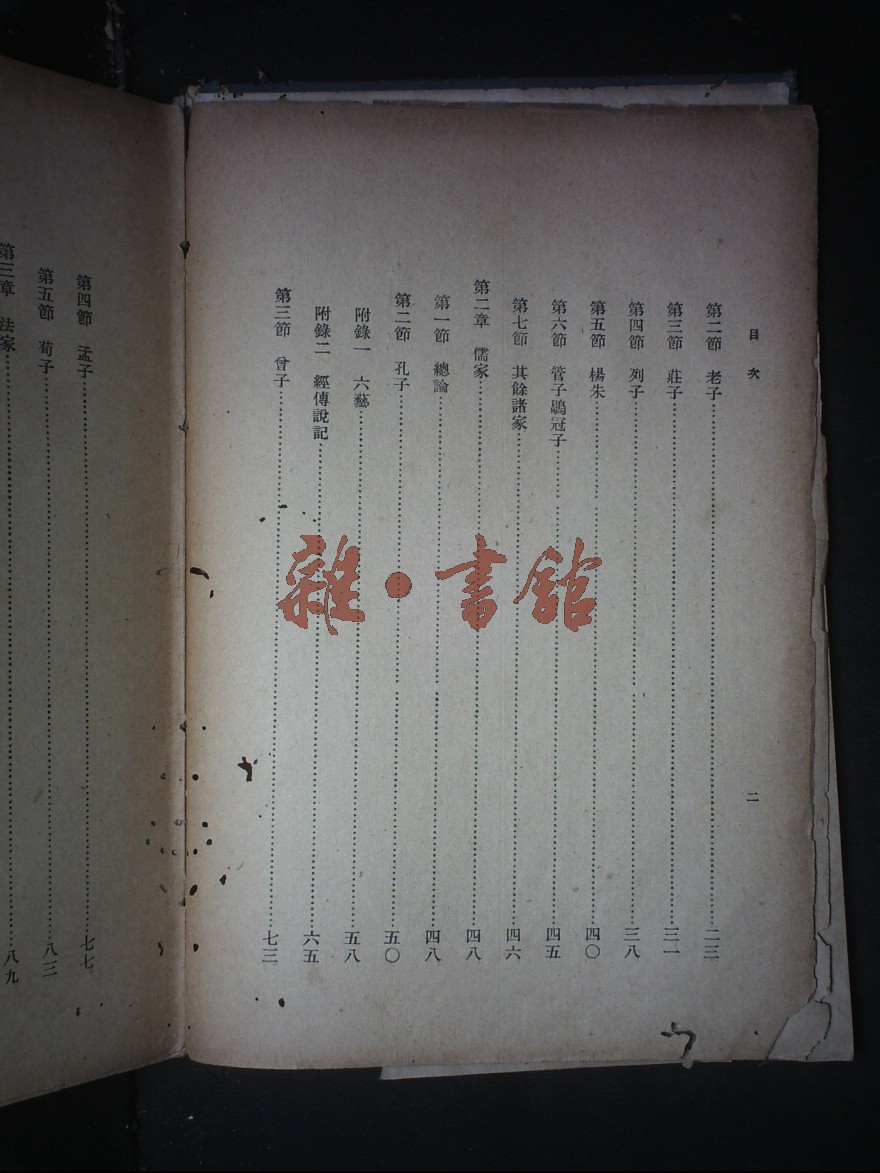 目次
二
第二節 老子……二三
第三節 莊子……三一
第四節 列子……三八
第五節 楊朱……四〇
第六節 管子鶡冠子……四五
第七節 其餘諸家……四六
第二章 儒家……四八
第一節 總論……四八
第二節 孔子……五〇
附錄一 六藝……五八
附錄二 經傳說記……六五
第三節 曾子……七三
第四節 孟子……七七
第五節 荀子……八三
第三章 法家……八九
雜·書館